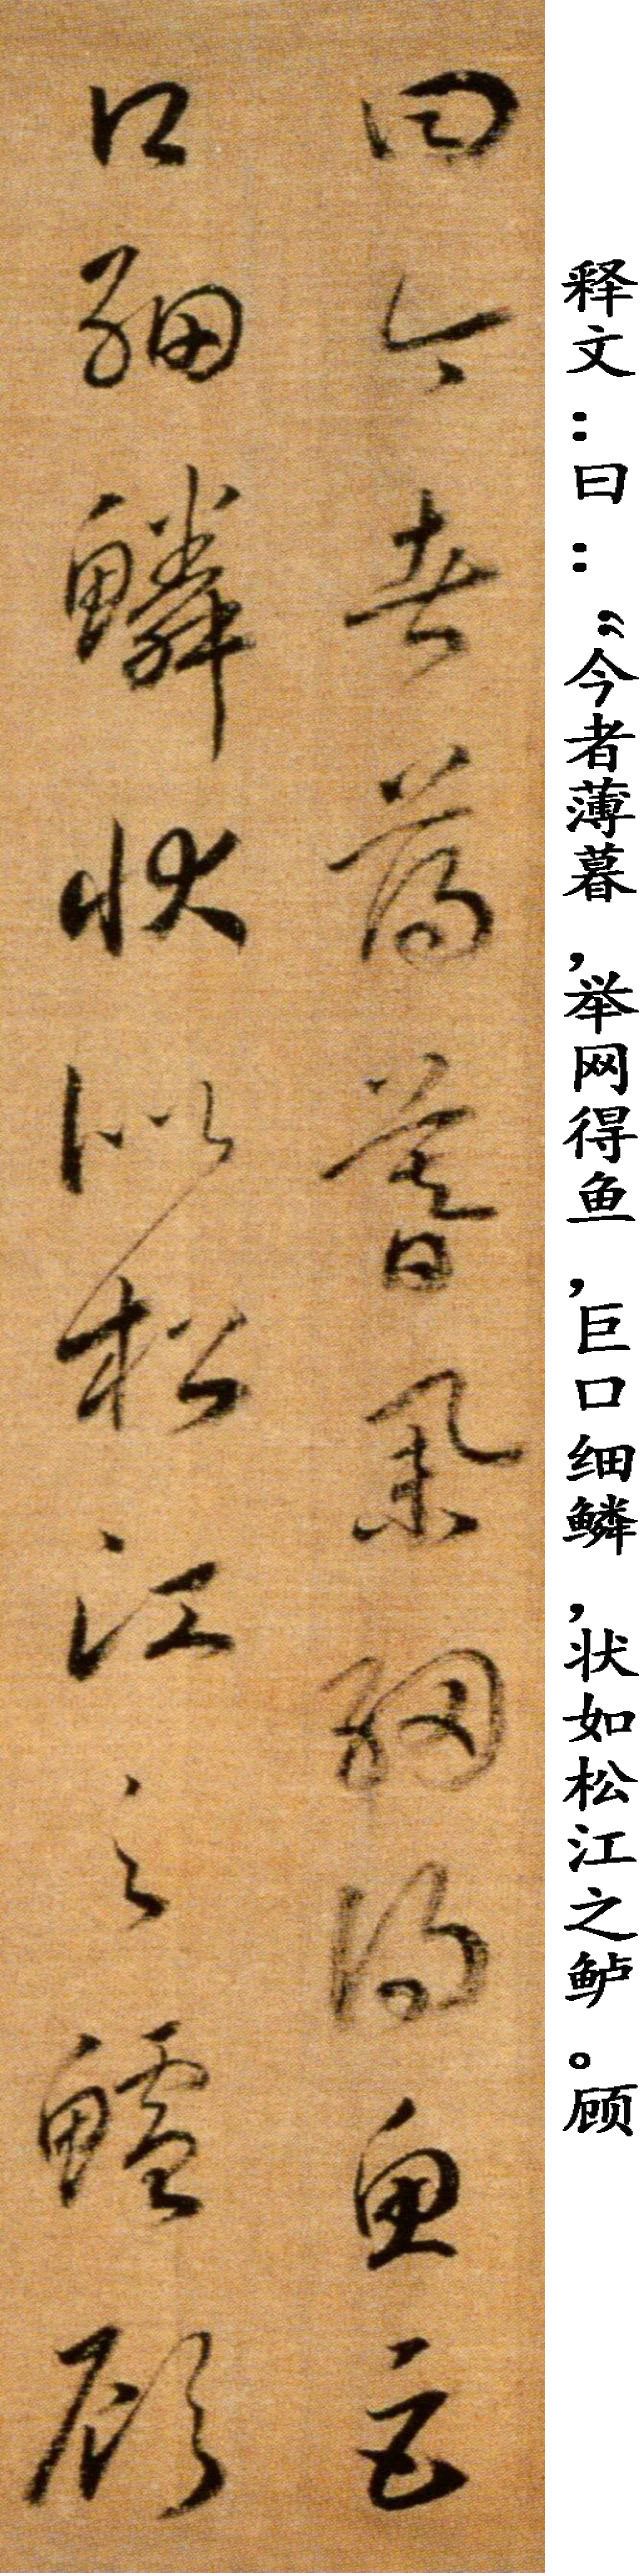 释文：曰：“今者薄暮，举网得鱼，巨口细鳞，状如松江之鲈。顾
曰今者薄暮舉網得魚巨
口細鱗状似松江之鱸顧